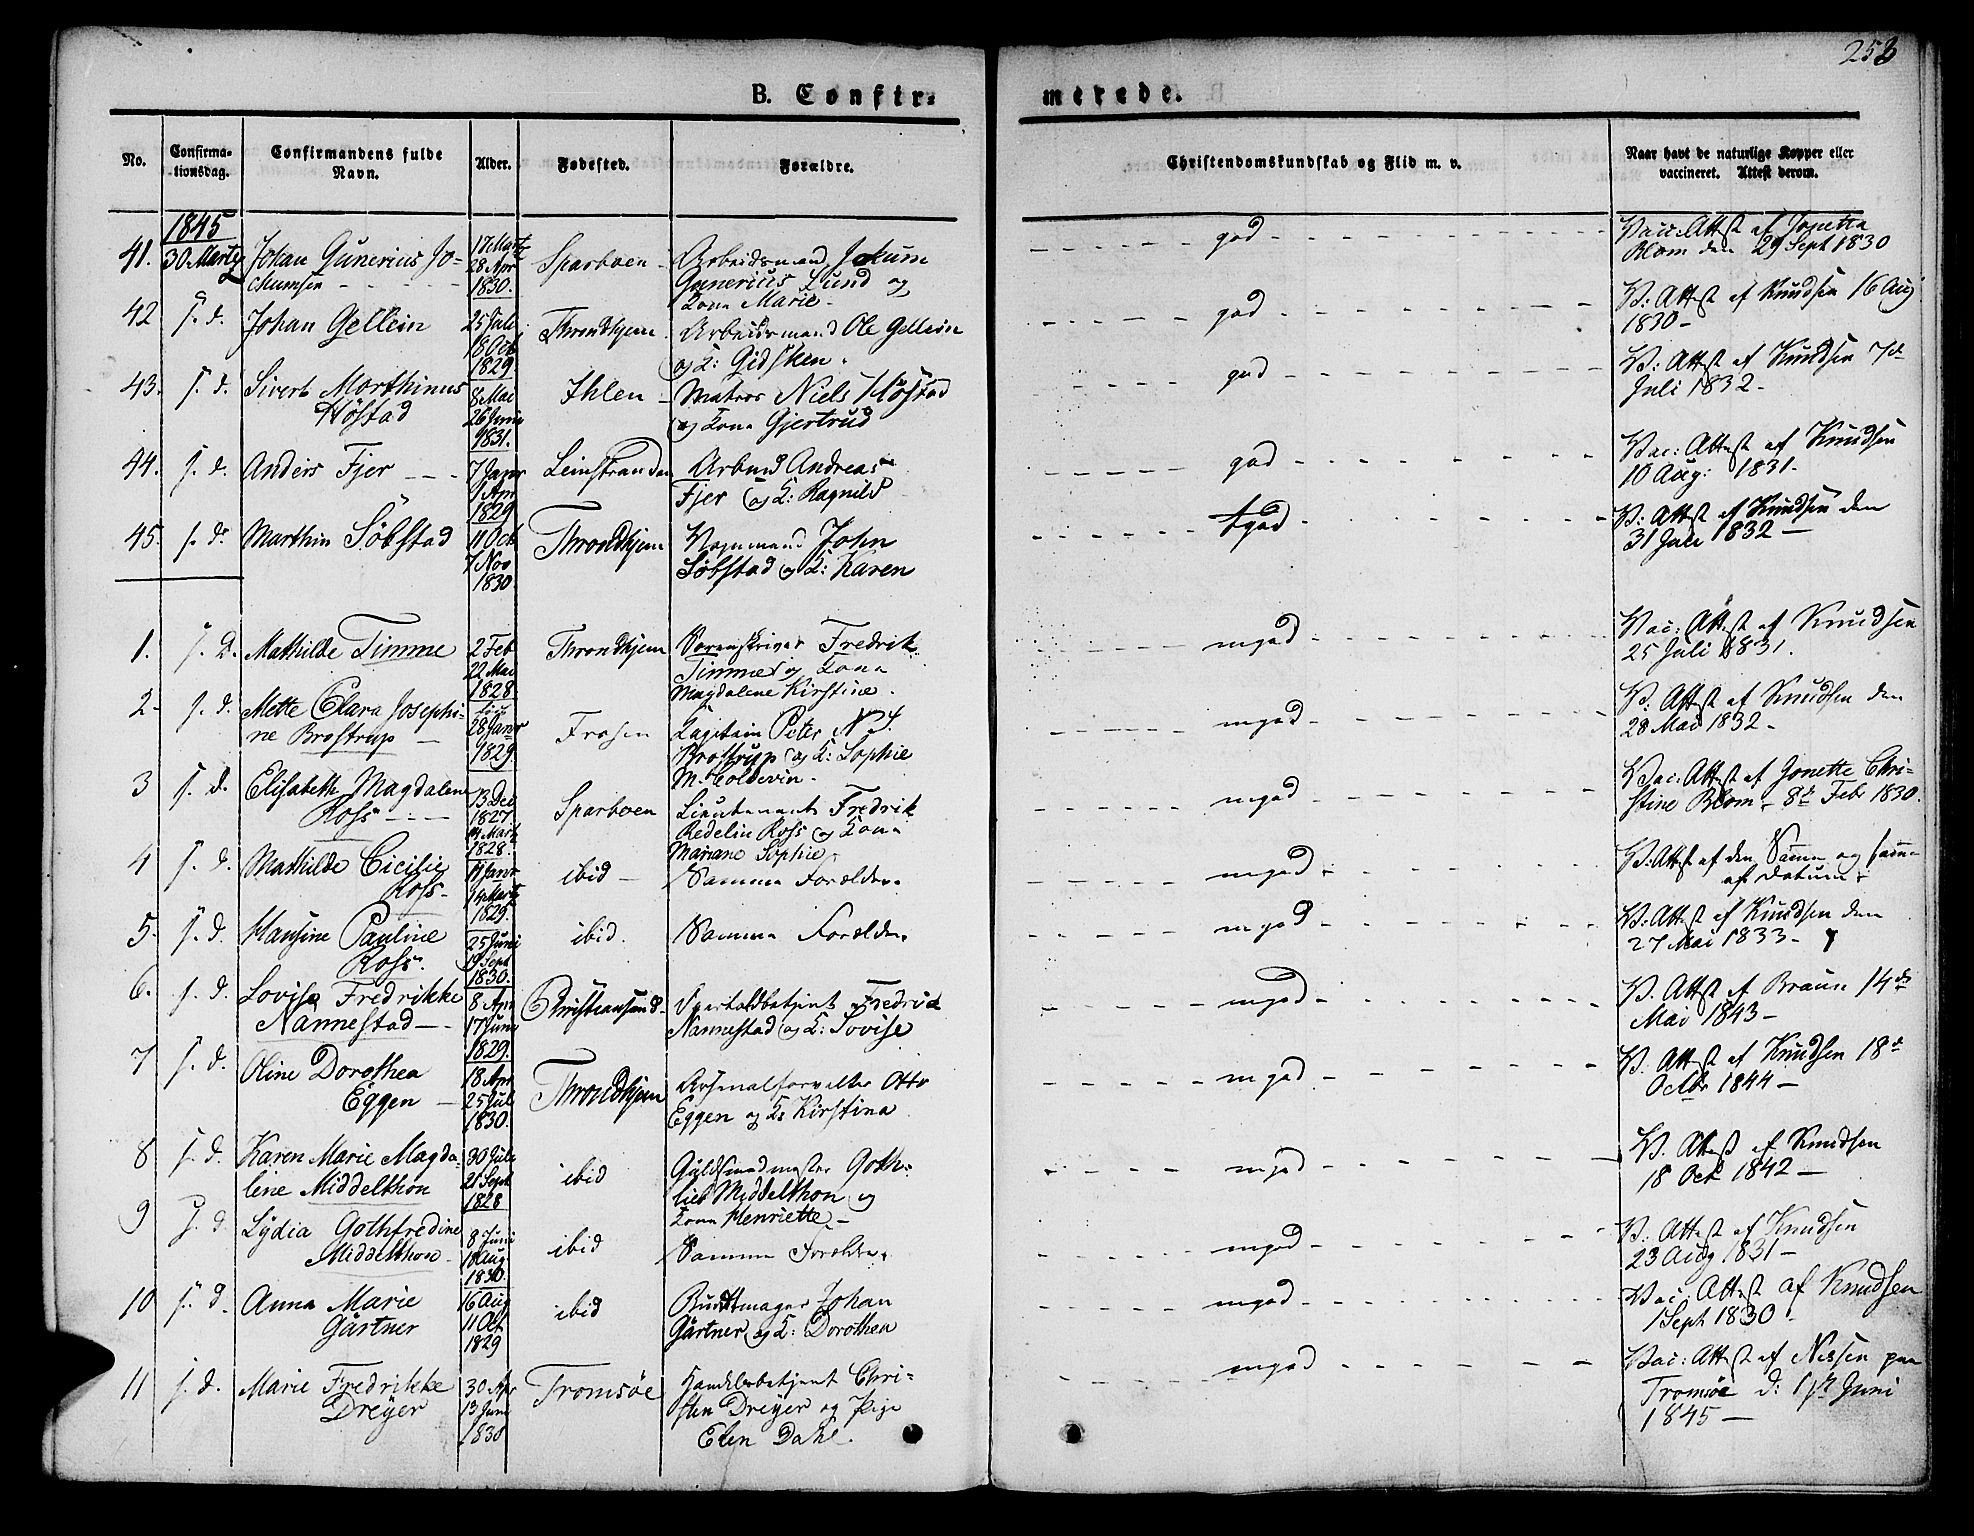 253
B. Confir- merede.
No.
Confirma-
tionsdag.
Confirmandens fulde
Navn.
Alder.
Fødested.
Forældre.
Christendomskundskab og Flid m. v.
Naar havt de naturlige Kopper eller
vaccineret. Attest derom.
1845
41. 30 Marty Johan Gunerius Jo-
chumsen
17 Martz
28 Apr
1830.
Sparboen
Arbeidsmand Jokum
Gunerius Lund og
Kona Marie
god
Vacc: Attest af Jonetta
Blom den 29 Sept 1830
42 s. d. Johan Gellein
25 Juli
18 Oct
1829
Throndhjem
Arbeidsmand Ole Gellein
og K: Gidsken.
god
V: Attest af Knudsen 16 Aug
1830-
43. s. d. Sivert Morthinus
Høstad
8 Mai
26 Juni
1831.
Ihlen
Matros Niels Høstad
og Kona Gjertrud
god
V: Attest af Knudsen 7de
Juli 1832-
44. s. d. Anders Fjer
7 Janr
1 Apr
1829
Leinstranden
Arbmd Andreas
Fjer og K: Ragnild
god
Vac: Attest af Knudsen
10 Aug: 1831-
45. s. d. Marthin Søbstad
11 Oct
7 Nov
1830
Throndhjem
Vognmand John
Søbstad og K: Karen
tgod
V: Attest af Knudsen den
31 Juli 1832-
1. s. d. Mathilde Timme
2 Feb
22 Mai
1828
Throndhjem
Sorenskriver Fredrik
Timme og Kona
Magdalene Kirstine.
mgod
Vac: Attest af Knudsen
25 Juli 1831.
2- s. d. Mette Clara Josephi-
ne Brostrup
28 Janr
1829.
Frosen
Capitain Peter N. J.
Brostrup og K: Sophie
M. Coldevin-
mgod
V: Attest af Knudsen den
28 Mai 1832-
3 s. d. Elisabeth Magdalene
Ross
13 Dec
1827
14 Mart
1828.
Sparboen
Lieutenant Fredrik
Redelin Ross og Kona
Mariane Sophie
mgod
Vac: Attest af Jonette Chri-
stine Blom - 8de Febr 1830.
4 s. d. Mathilde Cicilie
Ross-
11 Janr
14 Martz
1829.
ibid
Samme Forældre.
mgod
V: Attest af den Samme og samme
Datum
5. s. d. Hansine Pauline
Ross.
25 Juni
19 Sept
1830.
ibid.
Samme Forældre.
mgod
V: Attest af Knudsen den
27 Mai 1833-
6. s. d. Lovise Fredrikke
Nannestad
8 Apr
17 Juni
1829.
Christiansund
Fredrik
Nannestad og K: Lovise
mgod
V. Attest af Braun 14de
Mai 1843-
7 s. d. Oline Dorothea
Eggen
18 Apr
25 Jul
1830.
Throndhjem
Arsenalforvalter Otto
Eggen og K: Kirstina
mgod
V. Attest af Knudsen 18de
Octbr 1844-
8 s. d. Karen Marie Magda-
lene Middelthon
30 Juli
21 Sept
1828
ibid
Guldsmedmester Goth-
lieb Middelthon og
Kona Henriette-
mgod
V. Attest af Knudsen
18 Oct 1842-
9 s. d. Lydia Gothfredine
Middelthon
8 Juni
18 Aug
1830.
ibid
Samme Forældre.
mgod
V: Attest af Knudsen
23 Aug 1831-
10 s. d. Anna Marie
Gärtner
16 Aug
11 Oct
1829
ibid
Buntmager Johan
Gärtner og K: Dorothea
mgod
Vac: Attest af Knudsen
1 Sept 1830.
11 s. d. Marie Fredrikke
Dreyer
30 Apr
13 Juni
1830
Tromsøe
Handelsbetjent Chri-
sten Dreyer og Pige
Elen Dahl.
mgod
Vac: Attest af Nissen paa
Tromsøe d: 1ste Juni
1845-